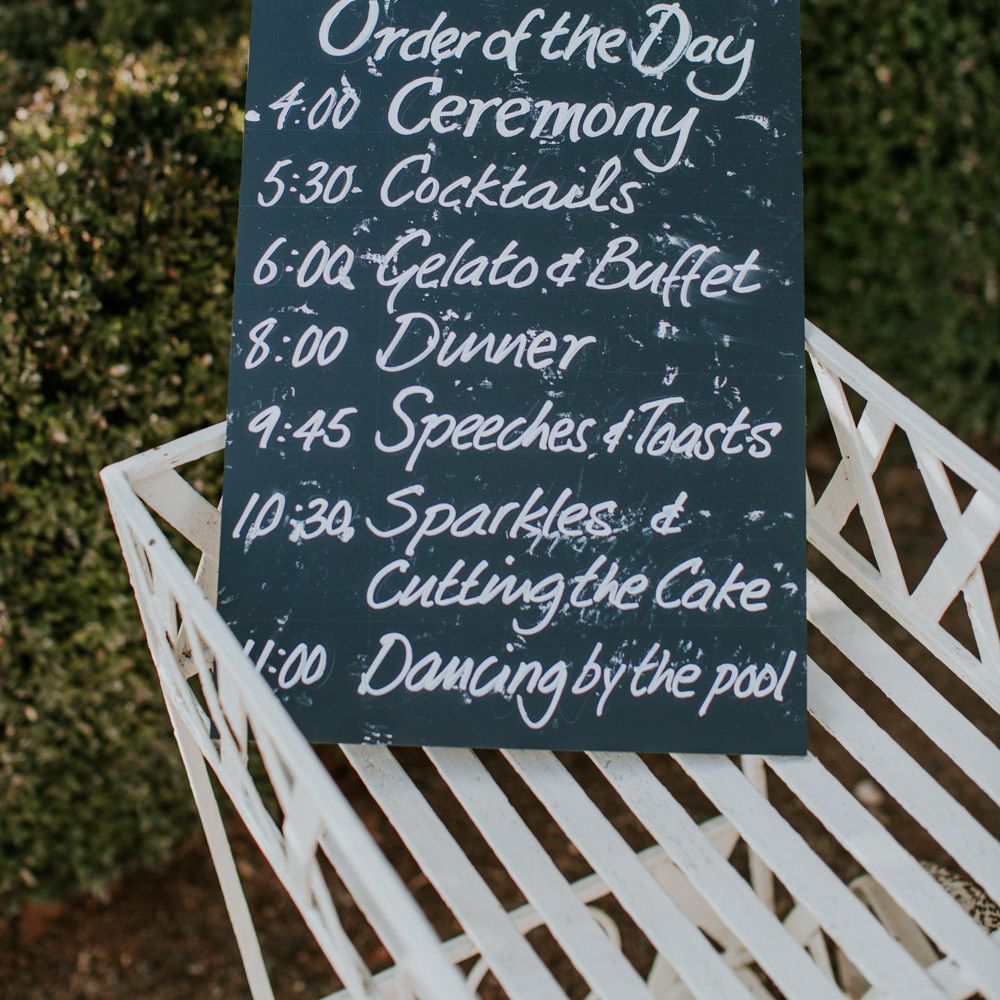 Order of the Day
4:00 Ceremony
5:30 Cocktails
6:00 Gelato & Buffet
8:00 Dinner
9:45 Speeches & Toasts
10:30 Sparkles &
Cutting the Cake
11:00 Dancing by the pool